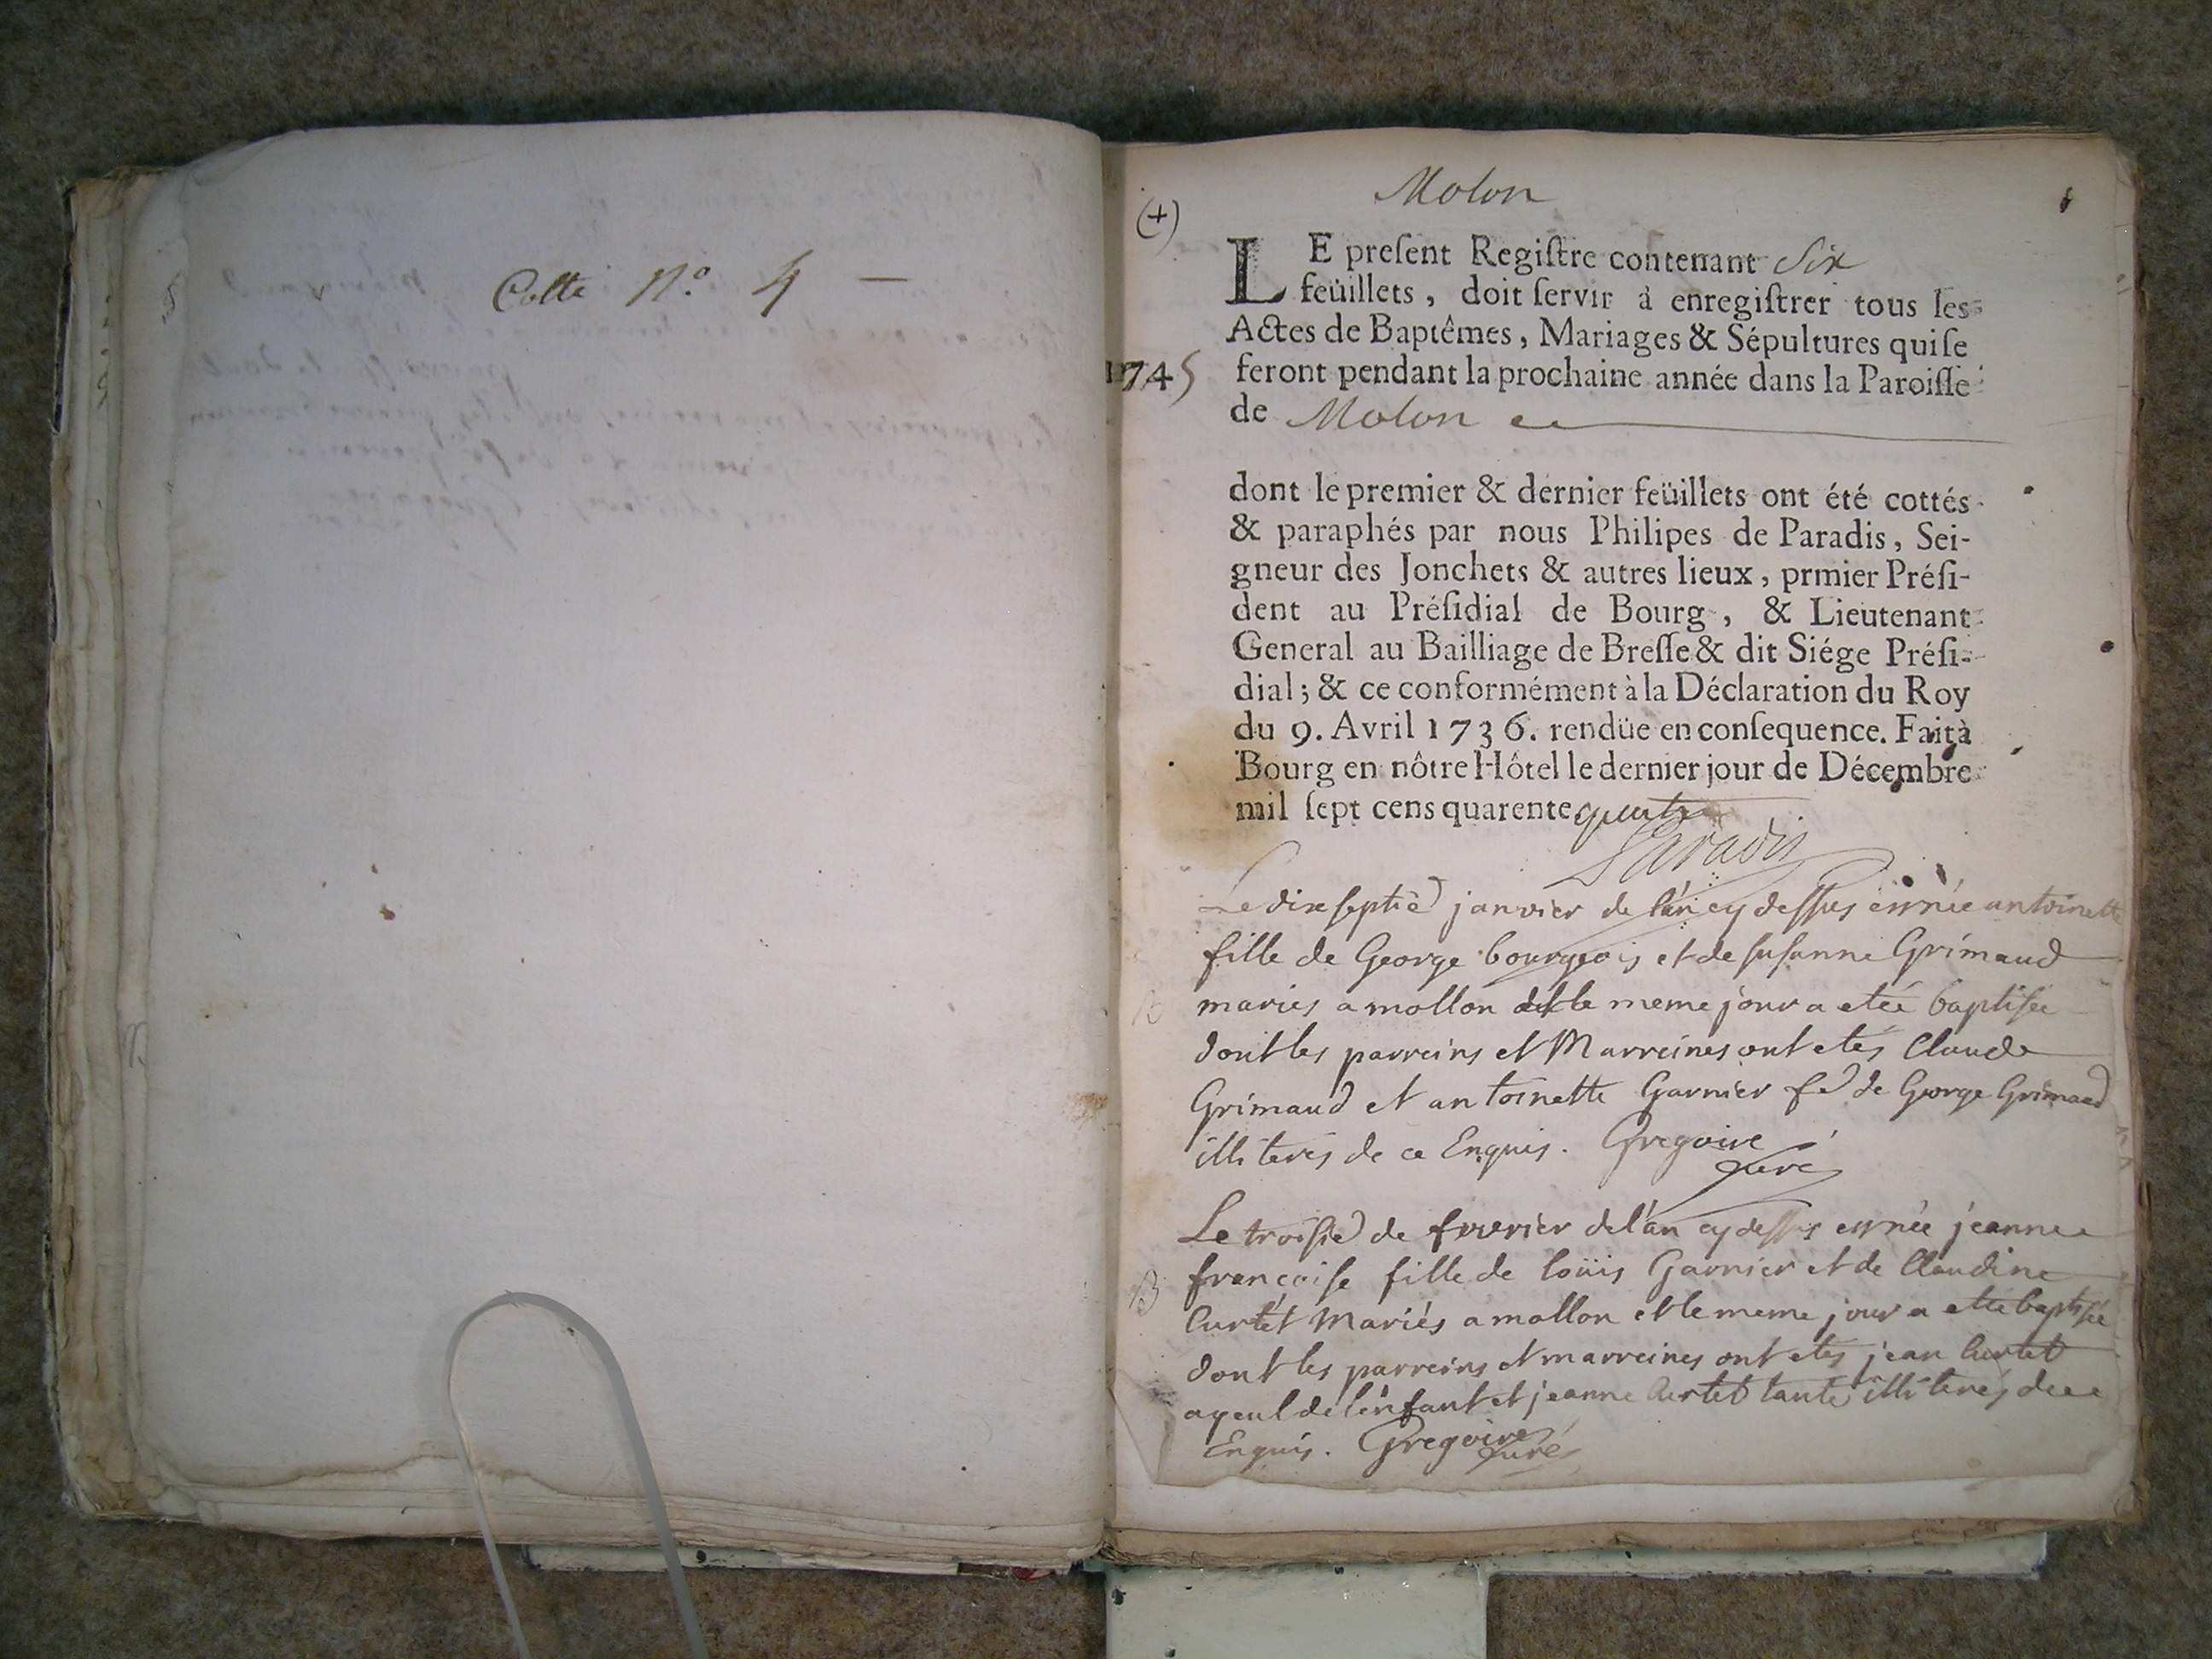 Cotte N.o 4 —
Molon
(+)
LE preſent Regiſtre contenant Six
feüillets, doit ſervir à enregiſtrer tous les
Actes de Baptêmes, Mariages & Sépultures qui ſe
1745
feront pendant la prochaine année dans la Paroiſſe
de Molon
dont le premier & dernier feüillets ont été cottés
& paraphés par nous Philipes de Paradis, Sei-
gneur des Jonchets & autres lieux, prmier Préſi-
dent au Préſidial de Bourg, & Lieutenant
General au Bailliage de Breſſe & dit Siége Préſi-
dial; & ce conformément à la Déclaration du Roy
du 9. Avril 1736. rendüe en conſequence. Fait à
Bourg en nôtre Hôtel le dernier jour de Décembre
mil ſept cens quarente quatre
Paradis
Le dix septie janvier de l'an cy dessus est née antoinette
fille de George bourgeois et de susanne Grimaud
B
mariés a mollon et le meme jour a eteé baptisée
dont les parreins et Marreines ont etés Claude
Grimaud et antoinette Garnier fe de George Grimaud
illiterés de ce Enquis. Gregoire
Curé
Le troisie de fevrier de l'an cy dessus est née jeanne
françoise fille de loüis Garnier et de Claudine
B
Curtet Mariés a mollon et le meme jour a eteé baptisée
dont les parreins et marreines ont etés jean Curtet
ayeul de l'enfant et jeanne Curtet tante illiterés de ce
Enquis. Gregoire
Curé